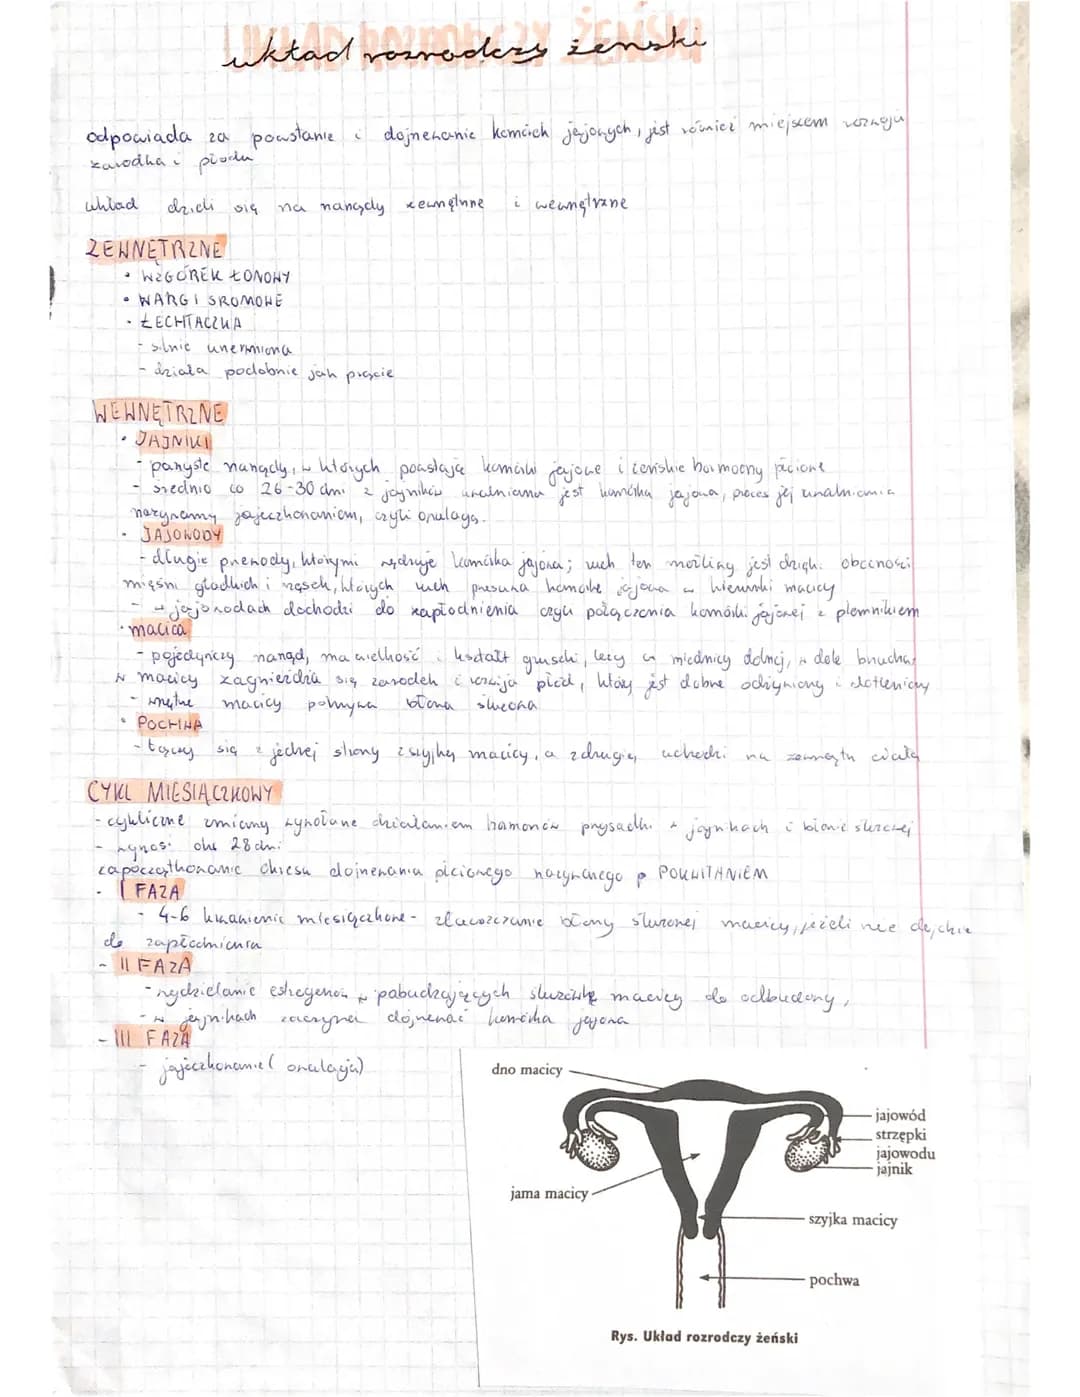 układ rozrodczy żeński
odpowiada za powstanie i dojrzewanie komórek jajowych, jest również miejscem rozwoju
zarodka i płodu
układ dzieli się na narządy zewnętrzne i wewnętrzne
ZEWNĘTRZNE
• WZGÓREK ŁONOWY
• WARGI SROMOWE
• ŁECHTACZKA
- silnie unerwiona
- działa podobnie jak prącie
WEWNĘTRZNE
• JAJNIKI
- parzyste narządy, w których powstają komórki jajowe i żeńskie hormony płciowe
- średnio co 26-30 dni z jajników uwalniana jest komórka jajowa, proces jej uwalniania
nazywamy jajeczkowaniem, czyli owulacją.
• JAJOWODY
- długie przewody, którymi wędruje komórka jajowa; ruch ten możliwy jest dzięki obecności
mięśni gładkich i rzęsek, których ruch przesuwa komórkę jajową w kierunku macicy
- w jajowodach dochodzi do zapłodnienia czyli połączenia komórki jajowej z plemnikiem
• macica
- pojedynczy narząd, ma wielkość i kształt gruszki, leży w miednicy dolnej, w dole brzucha
w macicy zagnieżdża się zarodek i rozwija płód, który jest dobrze odżywiony i dotleniony
- wnętrze macicy pokrywa błona śluzowa
• POCHWA
- łączy się z jednej strony z szyjką macicy, a z drugiej uchodzi na zewnątrz ciała
CYKL MIESIĄCZKOWY
- cykliczne zmiany wywołane działaniem hormonów przysadki w jajnikach i błonie śluzowej
- wynosi oko 28 dni
zapoczątkowanie okresu dojrzewania płciowego nazywanego POKWITANIEM
- I FAZA
- 4-6 krwawienie miesiączkowe - złuszczanie błony śluzowej macicy, jeżeli nie dojdzie
do zapłodnienia
- II FAZA
- wydzielanie estrogenów pobudzających śluzówkę macicy do odbudowy,
- w jajnikach zaczyna dojrzewać komórka jajowa
- III FAZA
- jajeczkowanie (owulacja)
dno macicy
jajowód
strzępki
jajowodu
jajnik
jama macicy
szyjka macicy
pochwa
Rys. Układ rozrodczy żeński